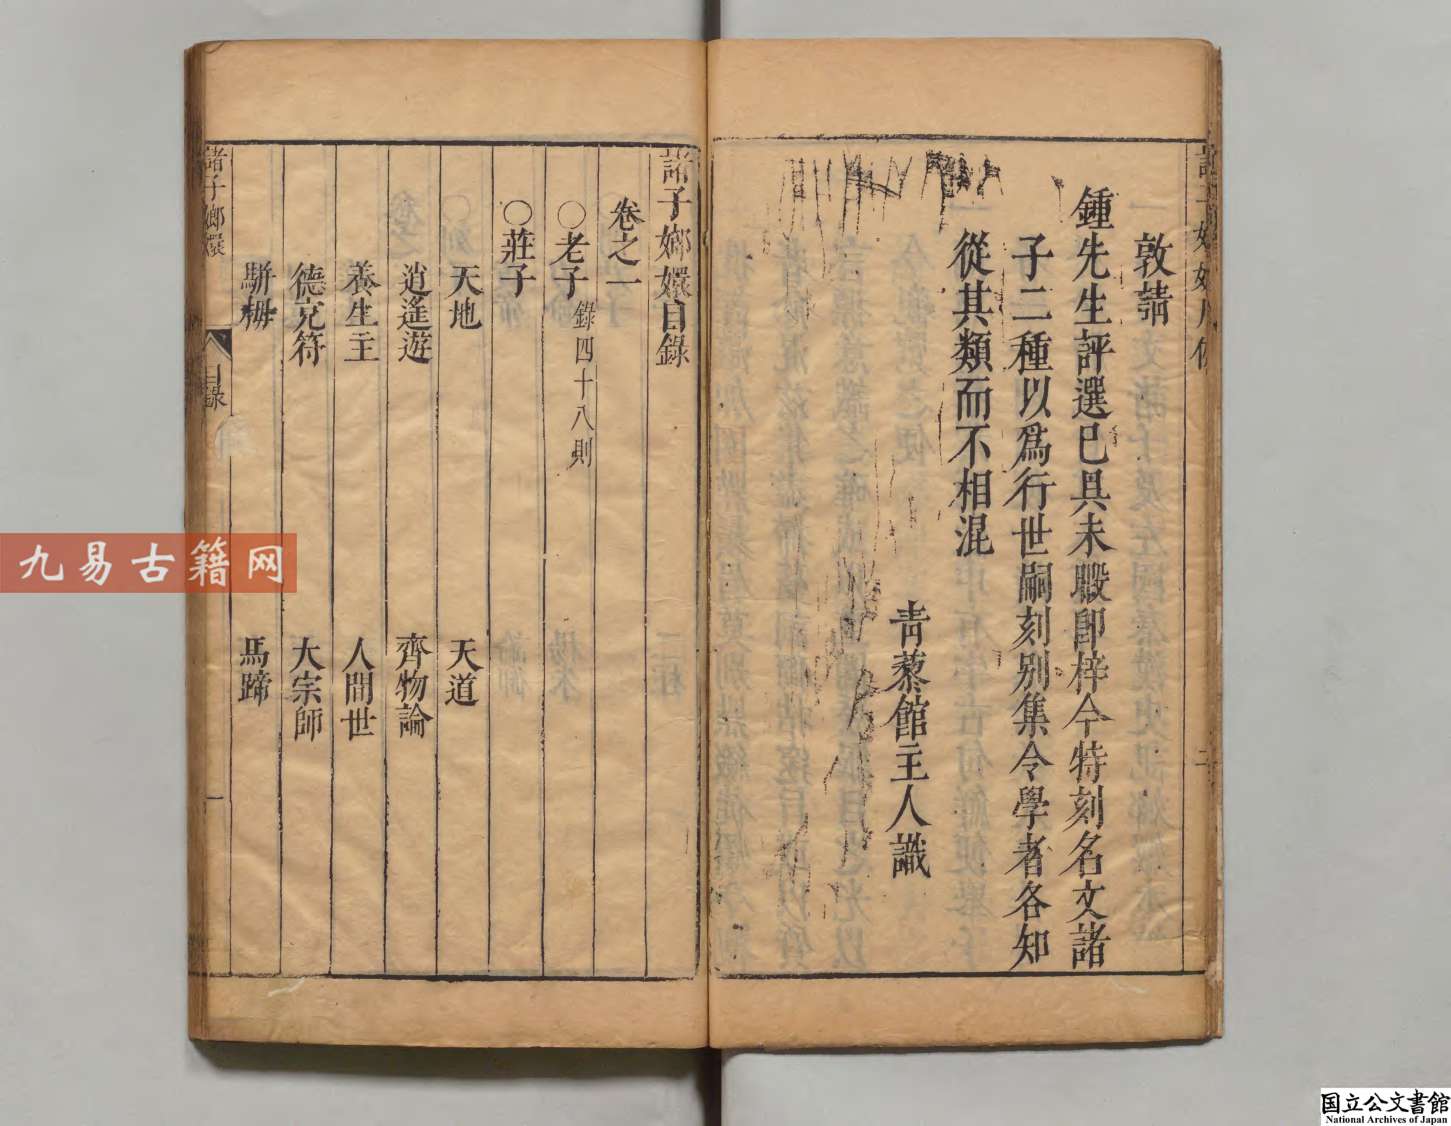 敦請
鍾先生評選已具未暇卽梓今特刻名文諸
子二種以爲行世嗣刻別集令學者各知
從其類而不相混
青藜館主人識
二
諸子嫏嬛目錄
卷之一
○老子 錄四十八則
○莊子
天地 天道
逍遙遊 齊物論
養生主 人間世
德充符 大宗師
駢拇 馬蹄
諸子嫏嬛 目錄 一
九易古籍网
国立公文書館
National Archives of Japan